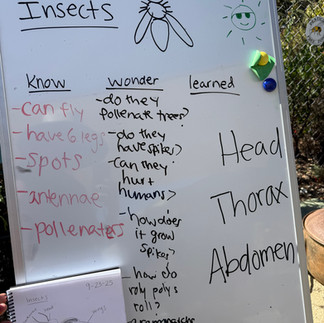 Insects
know
-can fly
-have 6 legs
-spots
-antennae
-pollenaters
wonder
-do they
pollenate trees?
-do they
have spikes?
-can they
hurt
humans?
-how does
it grow
spikes?
-how do
roly polys
roll?
learned
Head
Thorax
Abdomen
3-23-23